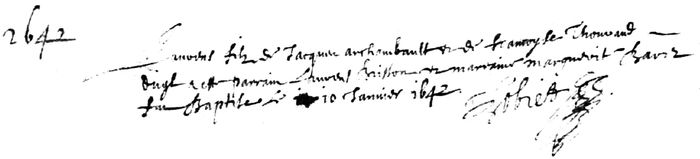 1642
Laurens filz de Jacques archambault et de francoyse Thouvaud
parrain Laurens Buisson et marraine marguerit
fut Baptise le 10 Janvier 1642